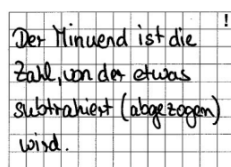 !
Der Minuend ist die
Zahl, von der etwas
subtrahiert (abgezogen)
wird.